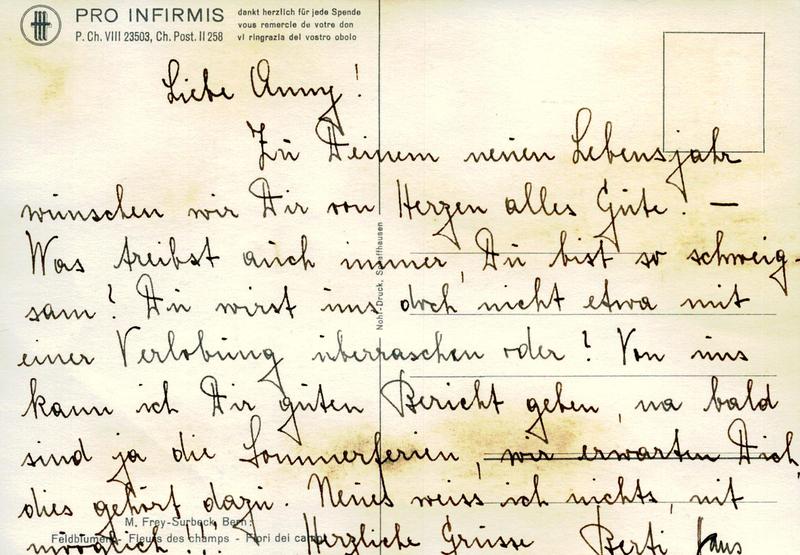 PRO INFIRMIS
P. Ch. VIII 23503, Ch. Post. II 258
dankt herzlich für jede Spende
vous remercie de votre don
vi ringrazia del vostro obolo
Liebe Anny!
Zu Deinem neuen Lebensjahr
wünschen wir Dir von Herzen alles Gute. —
Was treibst auch immer, Du bist so schweig-
sam? Du wirst uns doch nicht etwa mit
einer Verlobung überraschen oder? Von uns
kann ich Dir guten Bericht geben, na bald
sind ja die Sommerferien, wir erwarten Dich,
dies gehört dazu. Neues weiss ich nichts, nit
möglich ... Herzliche Grüsse Berti Hans
Nohl-Druck, Schaffhausen
M. Frey-Surbeck, Bern:
Feldblumen - Fleurs des champs - Fiori dei campi